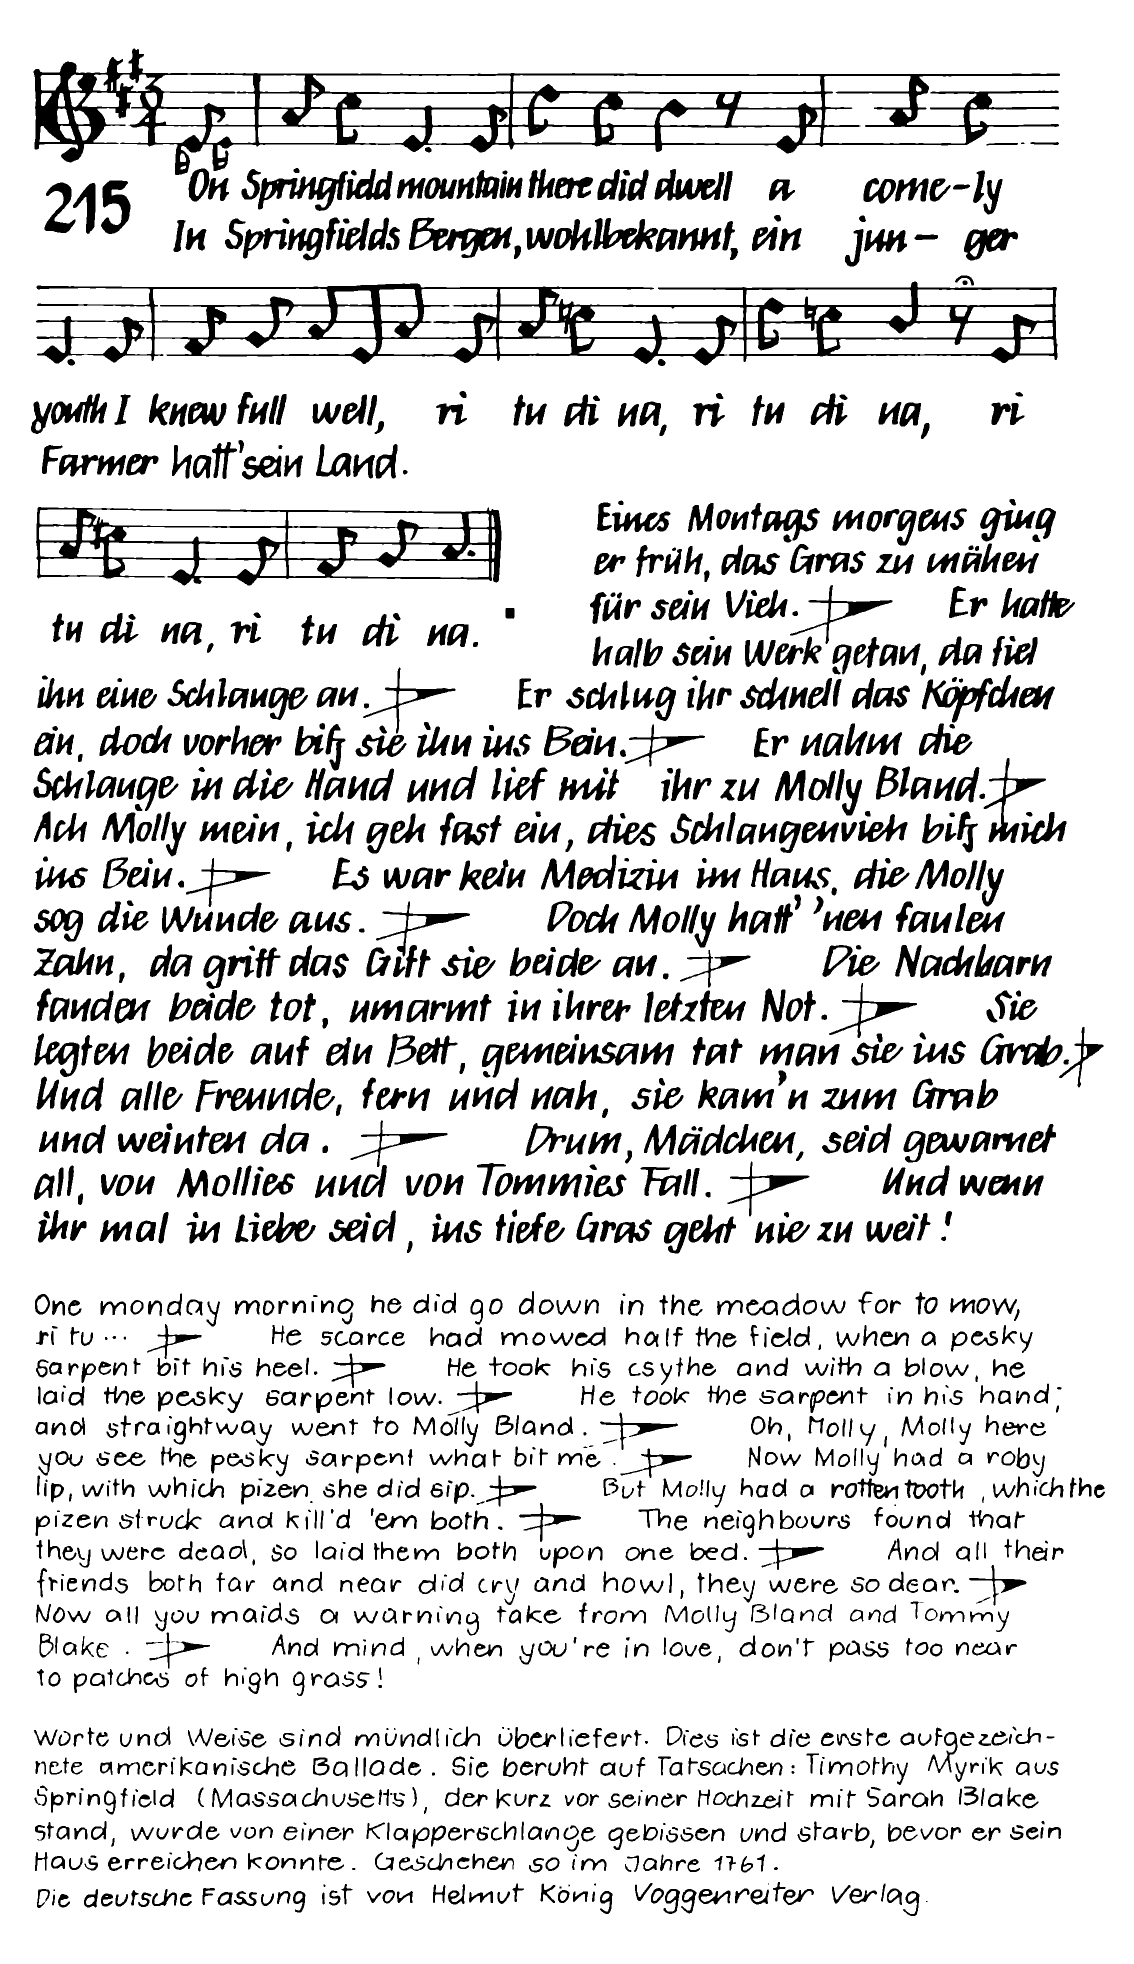 215
On Springfield mountain there did dwell a come-ly
In Springfields Bergen, wohlbekannt, ein jun- ger
youth I knew full well, ri tu di na, ri tu di na, ri
Farmer hatt' sein Land.
tu di na, ri tu di na.
Eines Montags morgens ging
er früh, das Gras zu mähen
für sein Vieh. Er hatte
halb sein Werk getan, da fiel
ihn eine Schlange an. Er schlug ihr schnell das Köpfchen
ein, doch vorher biß sie ihn ins Bein. Er nahm die
Schlange in die Hand und lief mit ihr zu Molly Bland.
Ach Molly mein, ich geh fast ein, dies Schlangenvieh biß mich
ins Bein. Es war kein Medizin im Haus, die Molly
sog die Wunde aus. Doch Molly hatt' 'nen faulen
Zahn, da griff das Gift sie beide an. Die Nachbarn
fanden beide tot, umarmt in ihrer letzten Not. Sie
legten beide auf ein Bett, gemeinsam tat man sie ins Grab.
Und alle Freunde, fern und nah, sie kam'n zum Grab
und weinten da. Drum, Mädchen, seid gewarnet
all, von Mollies und von Tommies Fall. Und wenn
ihr mal in Liebe seid, ins tiefe Gras geht nie zu weit!
One monday morning he did go down in the meadow for to mow,
ri tu ... He scarce had mowed half the field, when a pesky
sarpent bit his heel. He took his csythe and with a blow, he
laid the pesky sarpent low. He took the sarpent in his hand;
and straightway went to Molly Bland. Oh, Molly, Molly here
you see the pesky sarpent what bit me. Now Molly had a roby
lip, with which pizen she did sip. But Molly had a rotten tooth, which the
pizen struck and kill'd 'em both. The neighbours found that
they were dead, so laid them both upon one bed. And all their
friends both far and near did cry and howl, they were so dear.
Now all you maids a warning take from Molly Bland and Tommy
Blake. And mind, when you're in love, don't pass too near
to patches of high grass!
Worte und Weise sind mündlich überliefert. Dies ist die erste aufgezeich-
nete amerikanische Ballade. Sie beruht auf Tatsachen: Timothy Myrik aus
Springfield (Massachusetts), der kurz vor seiner Hochzeit mit Sarah Blake
stand, wurde von einer Klapperschlange gebissen und starb, bevor er sein
Haus erreichen konnte. Geschehen so im Jahre 1761.
Die deutsche Fassung ist von Helmut König Voggenreiter Verlag.